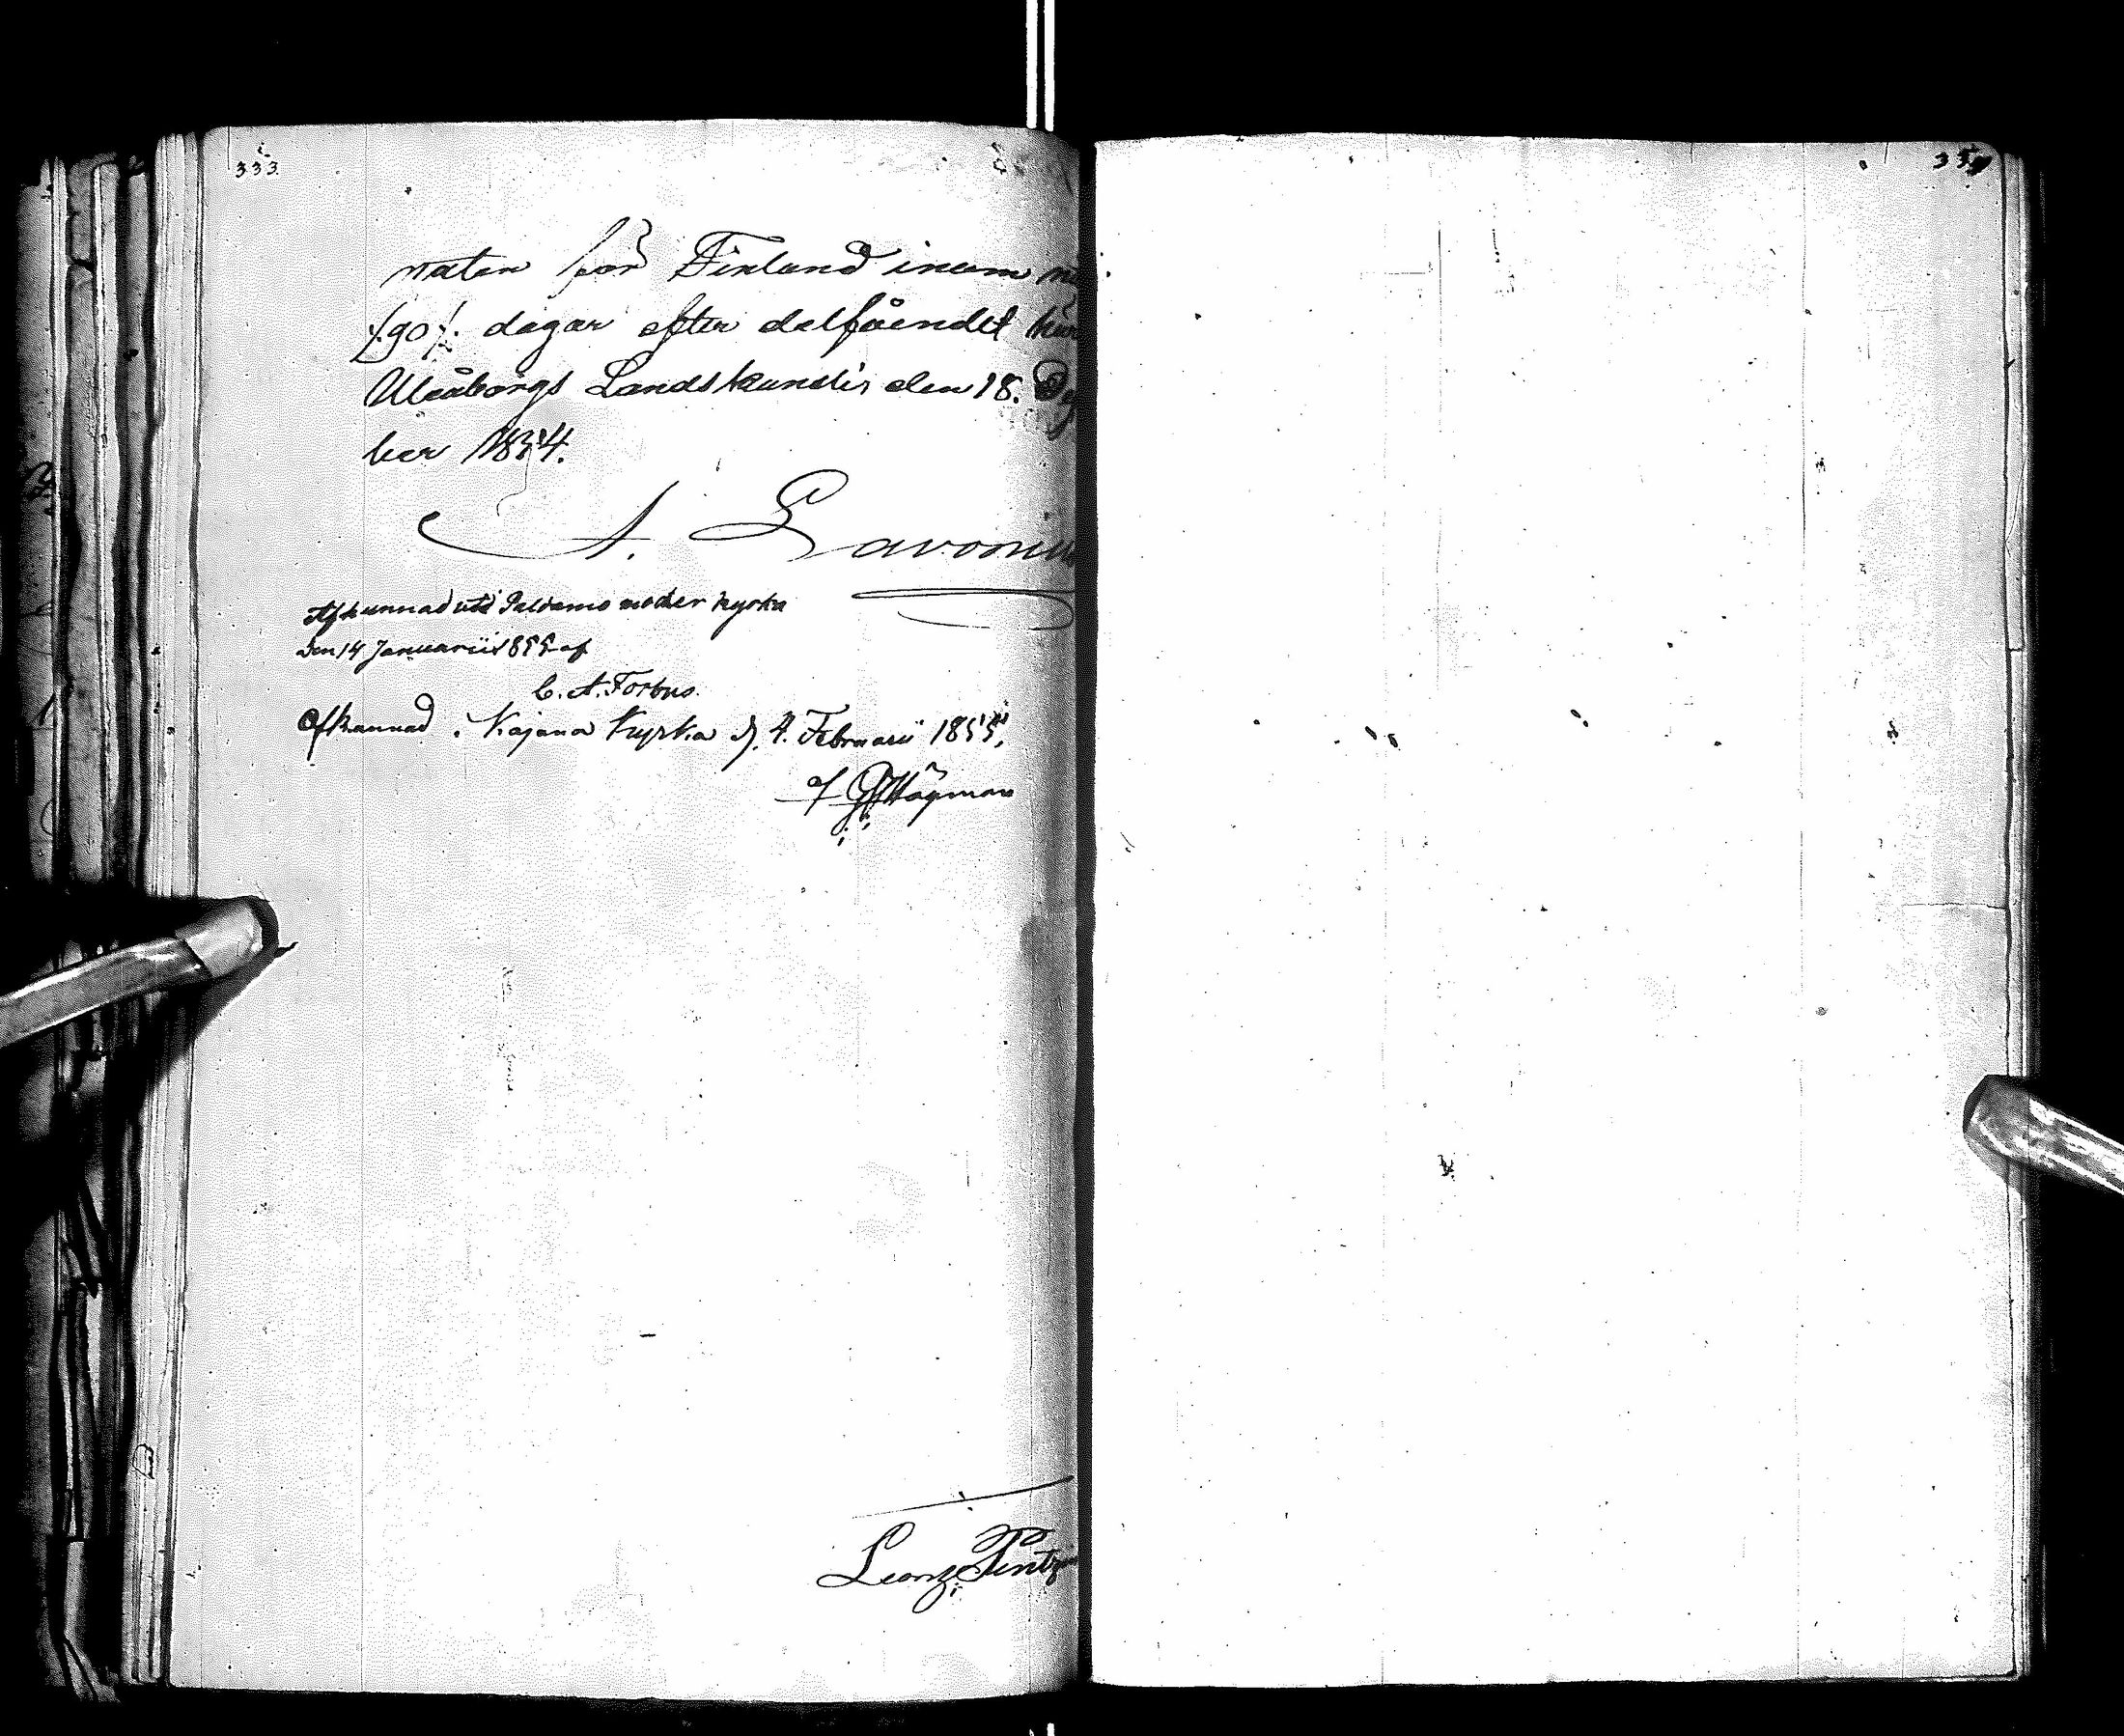 333.
naten för Finland inom
/:90:/ dagar efter delfåendet
Uleåborgs Landskansli den 18.
ber 1854.
A. Lavonius
Afkunnad uti Paldamo moder kyrka
den 14 Januarii 1855 af
C. A. Forbus.
Afkunnad i Kajana Kyrka d. 4. Februarii 1855,
af Högman